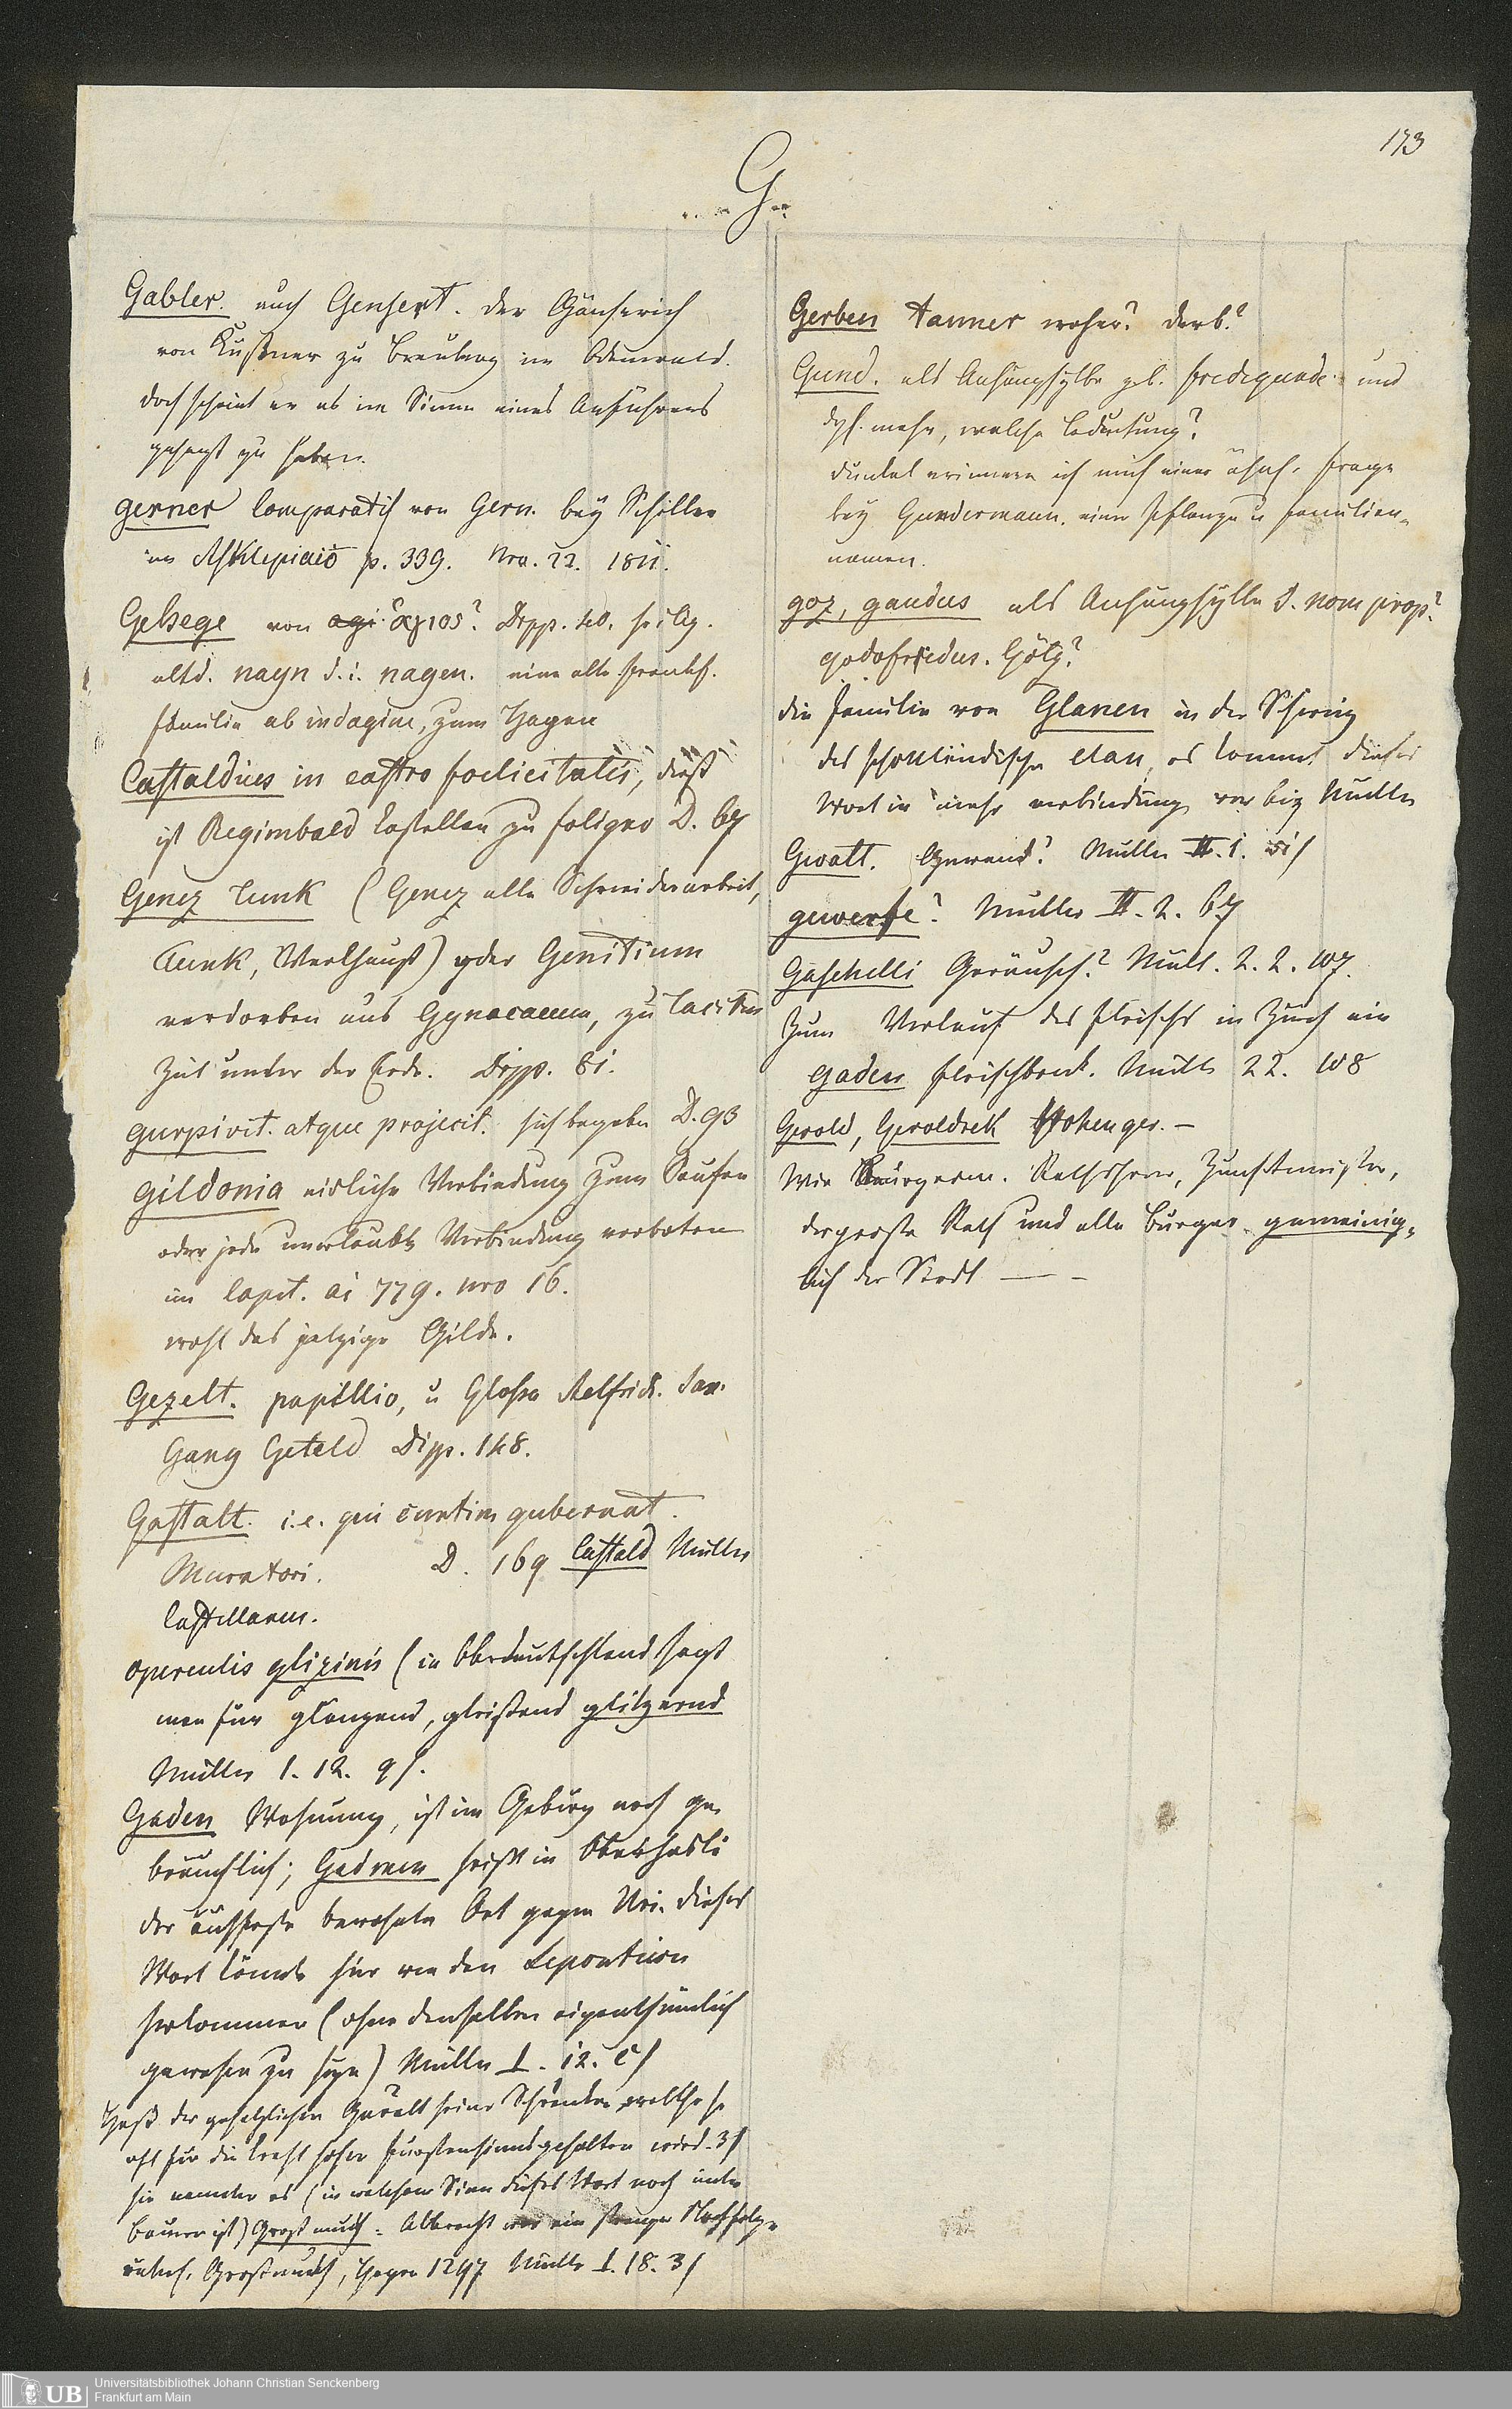 173
G
Gabler. auch Gensert. der Gänserich
von Küstner zu Breuberg im Odenwald.
doch scheint er es im Sinne eines Anführers
gesagt zu haben.
gerner Comparatif von Gern. bey Schiller
im Asklepiaio p. 339. Nro. 22. 1811.
Gehege von agi ἅγιος? Dipp. 40. sei Ag.
altd. nagn d.i. nagen. eine alte Frankf.
familie ab indagine, zum Hagen
Castaldius in castro foelicitatis, dieß
ist Regimbald Castellan zu foligno D. 67
Genez Tunk (Genez alle Schneiderarbeit,
Tunk, Werkhaus) oder Genitium
verdorben aus Gynacaeum, zu Tacitus
Zeit unter der Erde. Dipp. 81.
gurpivit. atque projecit. sich begeben D. 93
gildonia eidliche Verbindung zum Saufen
oder jede unerlaubte Verbindung verboten
im Capit. ai 779. nro 16.
wohl das jetzige Gilde.
Gezelt. papillio, u Glossa Aelfrid. Sax.
Gang Geteld Dipp. 148.
Gastalt. i.e. qui curtim gubernat.
Muratori. D. 169 Castald Müller
Castellanen.
operculis glizinis (in Oberdeutschland sagt
man für glänzend, gleißend glitzernd
Müller 1. 12. 9f.
Gaden Wohnung, ist im Gebürg noch ge
bräuchlich; Gadmen heißt in Oberhasli
der äusserste bewohnte Ort gegen Uri. dieses
Wort könnte hier von den Lepontiern
herkommen (ohne denselben eigenthümlich
gewesen zu seyn) Müller I. 12. c)
Haß der gesetzlichen Gewalt seine Schranken welcher so
oft für die Kraft hoher Fürstensinns gehalten wird. 3)
sie nannten es (in welchem Sinn dieses Wort noch unter
Bauern ist) Großmuth. Albrecht war ein strenger Nachfolger
Großmuth, Hagen 1297 Müller I. 18. 3)
Gerben tanner woher? derb?
Gund. als Anhangsylbe z.b. fredegunde und
dgl. mehr, welche Bedeutung?
dunkel erinnere ich mich einer ähnl. Frage
bey Gundermann, einer Pflanze u familien-
namen.
goz, gaudus als Anhangsylbe d. nom prop?
godofriedus. Götz?
die familie von Glanen in der Schweiz
des schottländische clan, es kommt dieses
Wort in mehr verbindung vor bey Müller
Gwatt. Gewand? Müller II. 1. 51
gewerfe? Müller II. 2. 67
Gaschelli Geräusch? Müll. 2. 2. 107.
Zum Verkauf des Fleischs in Zürch ein
gaden fleischbank. Müller 22. 108
Gerold, Geroldsek Hohenger. —
Wir Bürgerm. Rathsherrn, Zunftmeister,
der große Rath und alle Burger gemeinig-
lich der Stadt — -
UB
Universitätsbibliothek Johann Christian Senckenberg
Frankfurt am Main